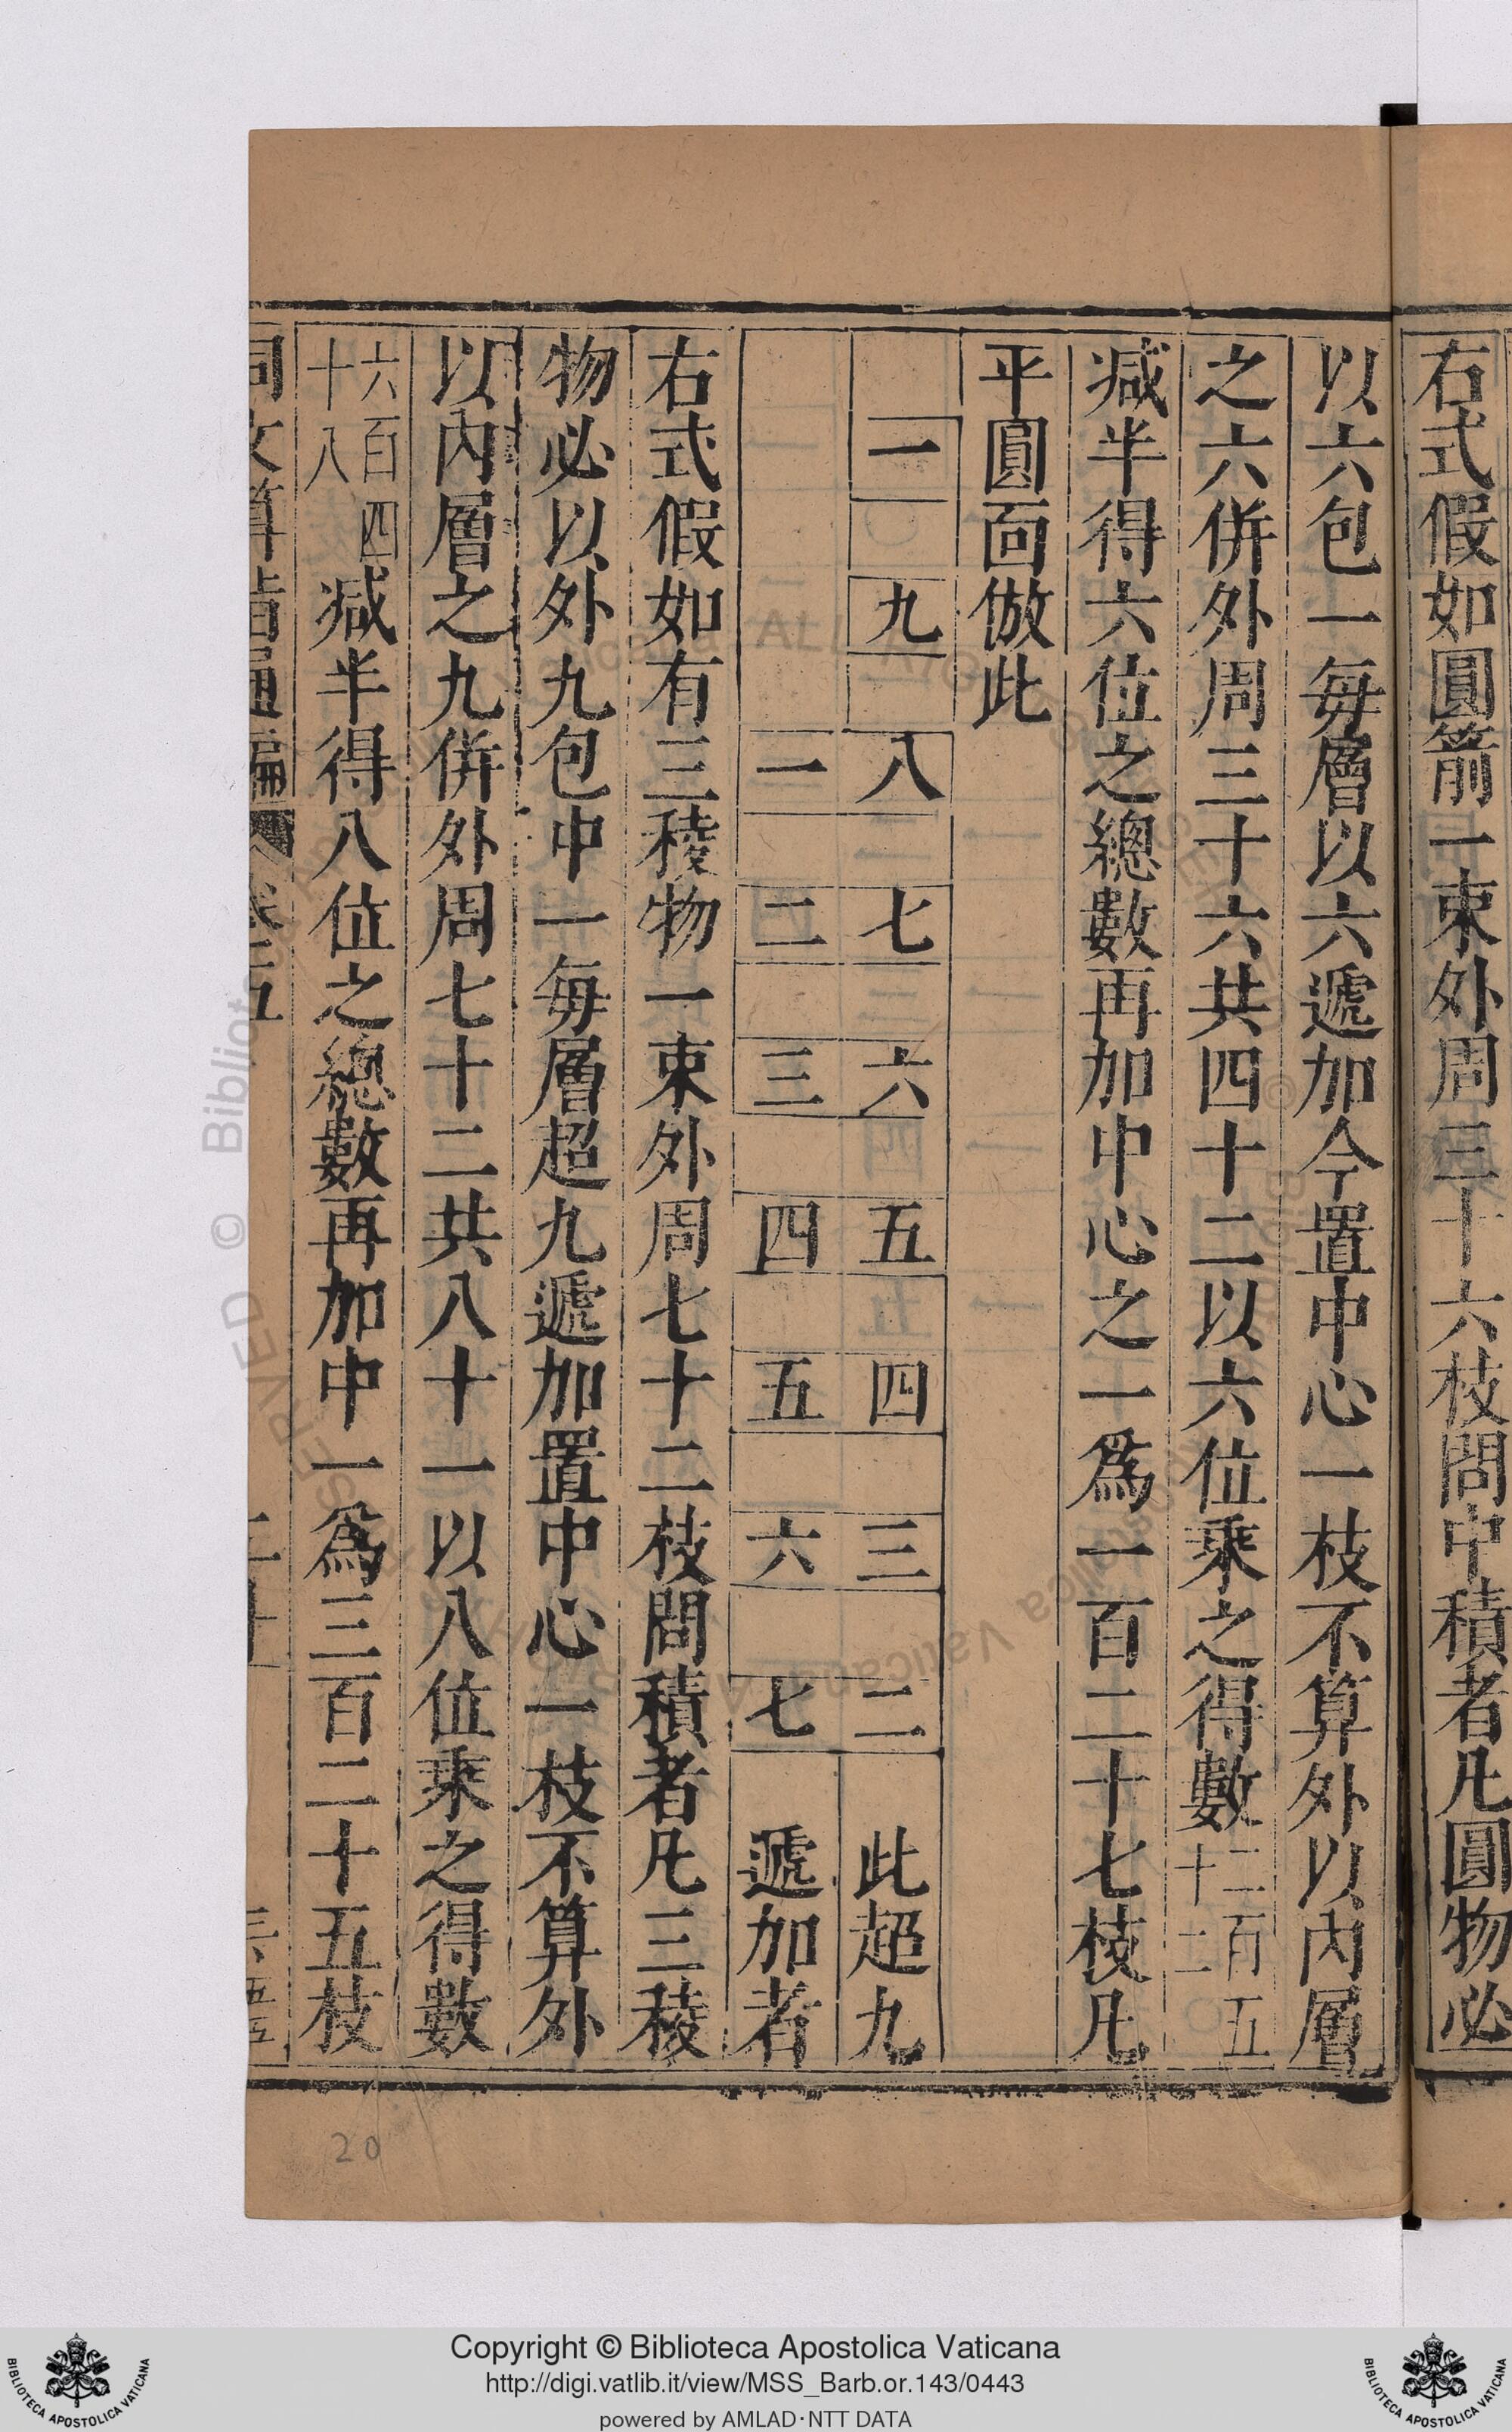 右式假如圓箭一束外周三十六枝問中積者凡圓物必
以六包一每層以六遞加今置中心一枝不算外以內層
之六併外周三十六共四十二以六位乘之得數二百五十二
减半得六位之總數再加中心之一為一百二十七枝凡
平圓面倣此
一 九 八 七 六 五 四 三 二 此超九
一 二 三 四 五 六 七 遞加者
右式假如有三稜物一束外周七十二枝問積者凡三稜
物必以外九包中一每層超九遞加置中心一枝不算外
以內層之九併外周七十二共八十一以八位乘之得數
六百四十八减半得八位之總數再加中一為三百二十五枝
20
Copyright © Biblioteca Apostolica Vaticana
http://digi.vatlib.it/view/MSS_Barb.or.143/0443
powered by AMLAD·NTT DATA
BIBLIOTECA APOSTOLICA VATICANA
BIBLIOTECA APOSTOLICA VATICANA